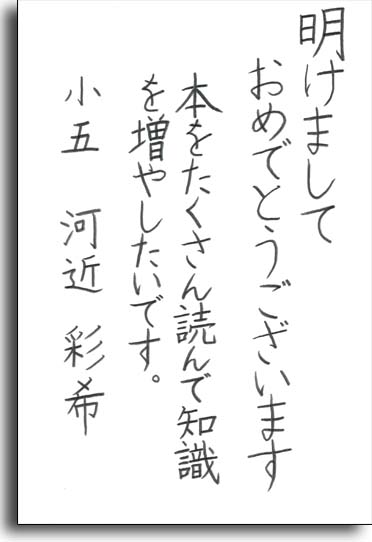 明けまして
おめでとうございます
本をたくさん読んで知識
を増やしたいです。
小五　河近　彩希